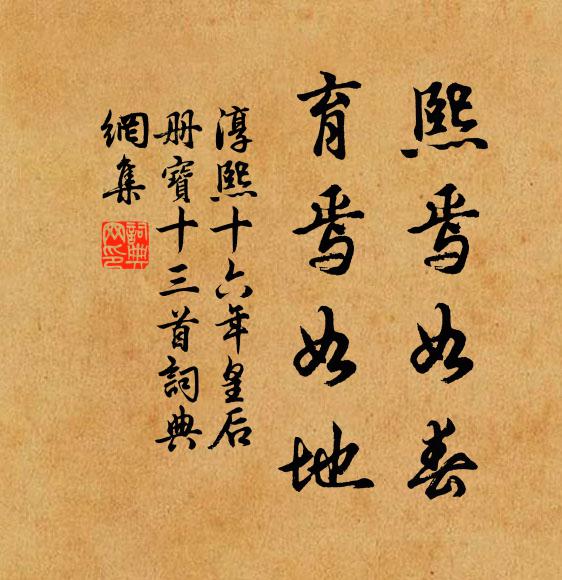 熙焉如春
育焉如地
淳熙十六年皇后
册寶十三首詞典
網集
詞典網印